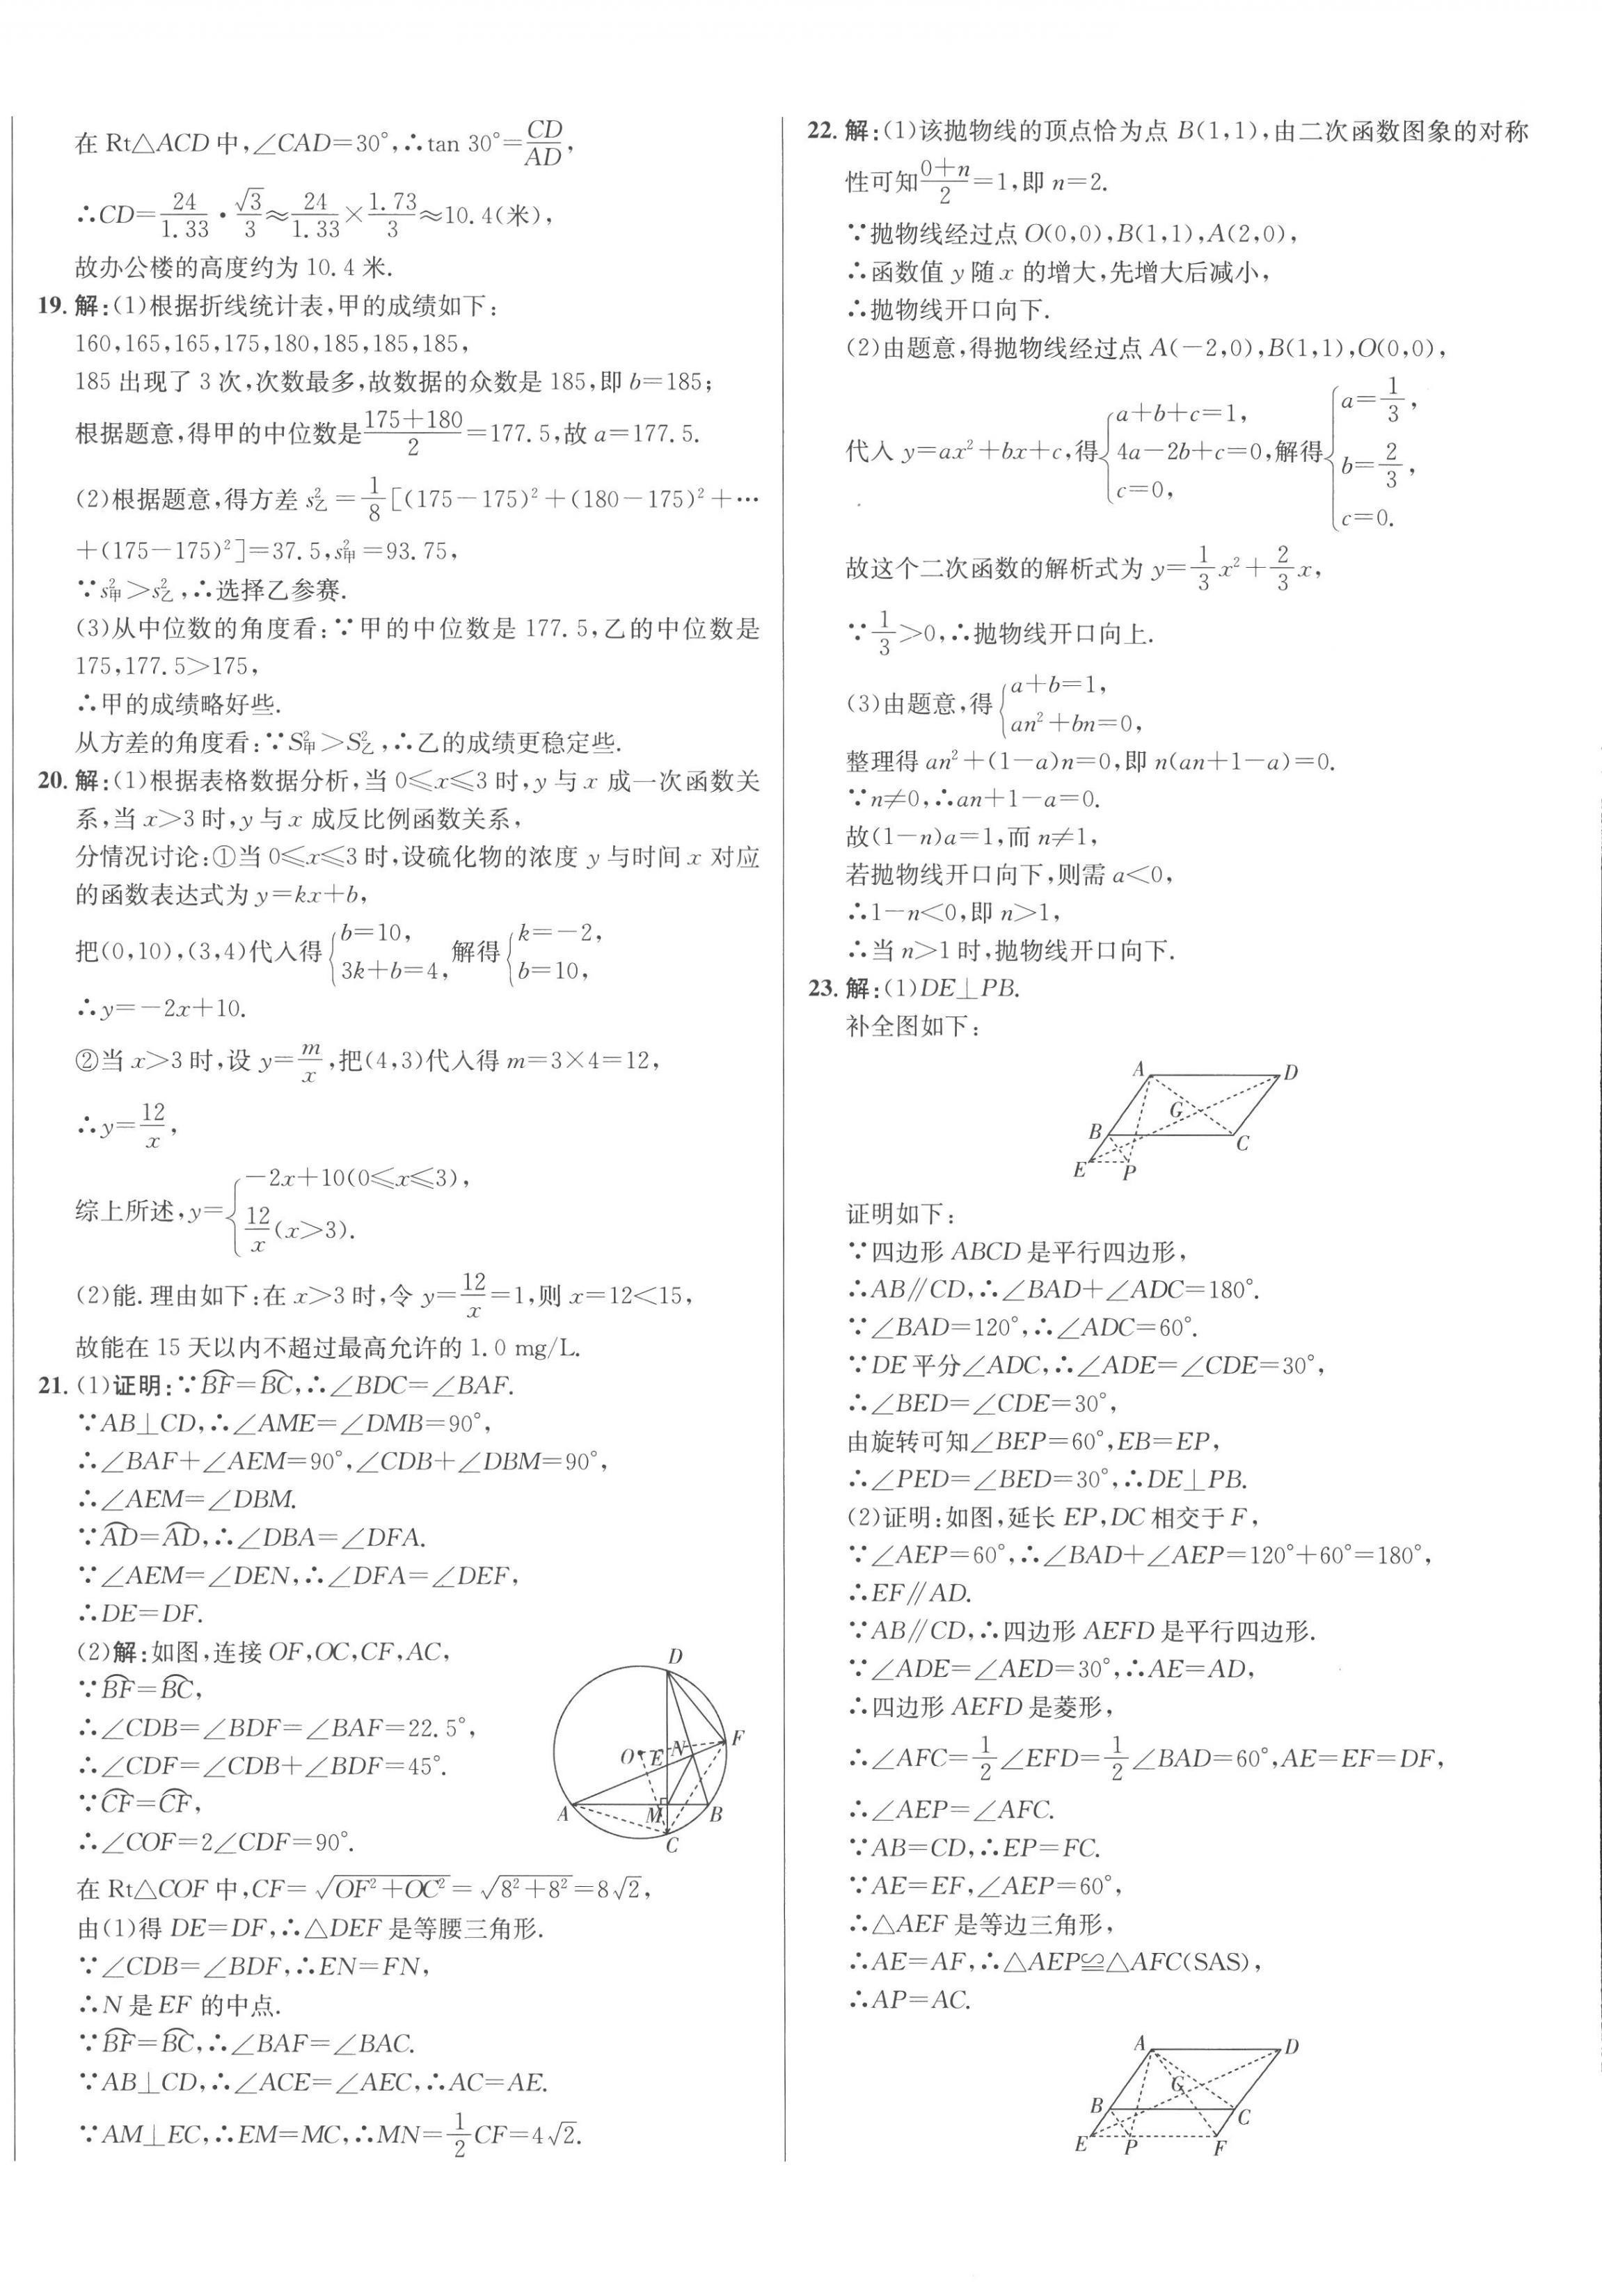 在 Rt△ACD 中,∠CAD=30°,∴tan 30°=CD/AD,
∴CD=24/1.33·√3/3≈24/1.33×1.73/3≈10.4(米),
故办公楼的高度约为 10.4 米.
19. 解:(1)根据折线统计表,甲的成绩如下:
160,165,165,175,180,185,185,185,
185 出现了 3 次,次数最多,故数据的众数是 185,即 b=185;
根据题意,得甲的中位数是(175+180)/2=177.5,故 a=177.5.
(2)根据题意,得方差 s²乙=1/8[(175-175)²+(180-175)²+…
+(175-175)²]=37.5,s²甲=93.75,
∵s²甲>s²乙,∴选择乙参赛.
(3)从中位数的角度看:∵甲的中位数是 177.5,乙的中位数是
175,177.5>175,
∴甲的成绩略好些.
从方差的角度看:∵S²甲>S²乙,∴乙的成绩更稳定些.
20. 解:(1)根据表格数据分析,当 0≤x≤3 时,y 与 x 成一次函数关
系,当 x>3 时,y 与 x 成反比例函数关系,
分情况讨论:①当 0≤x≤3 时,设硫化物的浓度 y 与时间 x 对应
的函数表达式为 y=kx+b,
把(0,10),(3,4)代入得{b=10, 3k+b=4, 解得{k=-2, b=10,
∴y=-2x+10.
②当 x>3 时,设 y=m/x,把(4,3)代入得 m=3×4=12,
∴y=12/x,
综上所述,y={-2x+10(0≤x≤3), 12/x(x>3).
(2)能.理由如下:在 x>3 时,令 y=12/x=1,则 x=12<15,
故能在 15 天以内不超过最高允许的 1.0 mg/L.
21. (1)证明:∵⌒BF=⌒BC,∴∠BDC=∠BAF.
∵AB⊥CD,∴∠AME=∠DMB=90°,
∴∠BAF+∠AEM=90°,∠CDB+∠DBM=90°,
∴∠AEM=∠DBM.
∵⌒AD=⌒AD,∴∠DBA=∠DFA.
∵∠AEM=∠DEN,∴∠DFA=∠DEF,
∴DE=DF.
(2)解:如图,连接 OF,OC,CF,AC,
∵⌒BF=⌒BC,
∴∠CDB=∠BDF=∠BAF=22.5°,
∴∠CDF=∠CDB+∠BDF=45°.
∵⌒CF=⌒CF,
∴∠COF=2∠CDF=90°.
D
F
O E N
A M B
C
在 Rt△COF 中,CF=√(OF²+OC²)=√(8²+8²)=8√2,
由(1)得 DE=DF,∴△DEF 是等腰三角形.
∵∠CDB=∠BDF,∴EN=FN,
∴N 是 EF 的中点.
∵⌒BF=⌒BC,∴∠BAF=∠BAC.
∵AB⊥CD,∴∠ACE=∠AEC,∴AC=AE.
∵AM⊥EC,∴EM=MC,∴MN=1/2CF=4√2.
22. 解:(1)该抛物线的顶点恰为点 B(1,1),由二次函数图象的对称
性可知(0+n)/2=1,即 n=2.
∵抛物线经过点 O(0,0),B(1,1),A(2,0),
∴函数值 y 随 x 的增大,先增大后减小,
∴抛物线开口向下.
(2)由题意,得抛物线经过点 A(-2,0),B(1,1),O(0,0),
代入 y=ax²+bx+c,得{a+b+c=1, 4a-2b+c=0, c=0, 解得{a=1/3, b=2/3, c=0.
故这个二次函数的解析式为 y=1/3x²+2/3x,
∵1/3>0,∴抛物线开口向上.
(3)由题意,得{a+b=1, an²+bn=0,
整理得 an²+(1-a)n=0,即 n(an+1-a)=0.
∵n≠0,∴an+1-a=0.
故(1-n)a=1,而 n≠1,
若抛物线开口向下,则需 a<0,
∴1-n<0,即 n>1,
∴当 n>1 时,抛物线开口向下.
23. 解:(1)DE⊥PB.
补全图如下:
A D
G
B C
E P
证明如下:
∵四边形 ABCD 是平行四边形,
∴AB∥CD,∴∠BAD+∠ADC=180°.
∵∠BAD=120°,∴∠ADC=60°.
∵DE 平分∠ADC,∴∠ADE=∠CDE=30°,
∴∠BED=∠CDE=30°,
由旋转可知∠BEP=60°,EB=EP,
∴∠PED=∠BED=30°,∴DE⊥PB.
(2)证明:如图,延长 EP,DC 相交于 F,
∵∠AEP=60°,∴∠BAD+∠AEP=120°+60°=180°,
∴EF∥AD.
∵AB∥CD,∴四边形 AEFD 是平行四边形.
∵∠ADE=∠AED=30°,∴AE=AD,
∴四边形 AEFD 是菱形,
∴∠AFC=1/2∠EFD=1/2∠BAD=60°,AE=EF=DF,
∴∠AEP=∠AFC.
∵AB=CD,∴EP=FC.
∵AE=EF,∠AEP=60°,
∴△AEF 是等边三角形,
∴AE=AF,∴△AEP≌△AFC(SAS),
∴AP=AC.
A D
G
B C
E P F